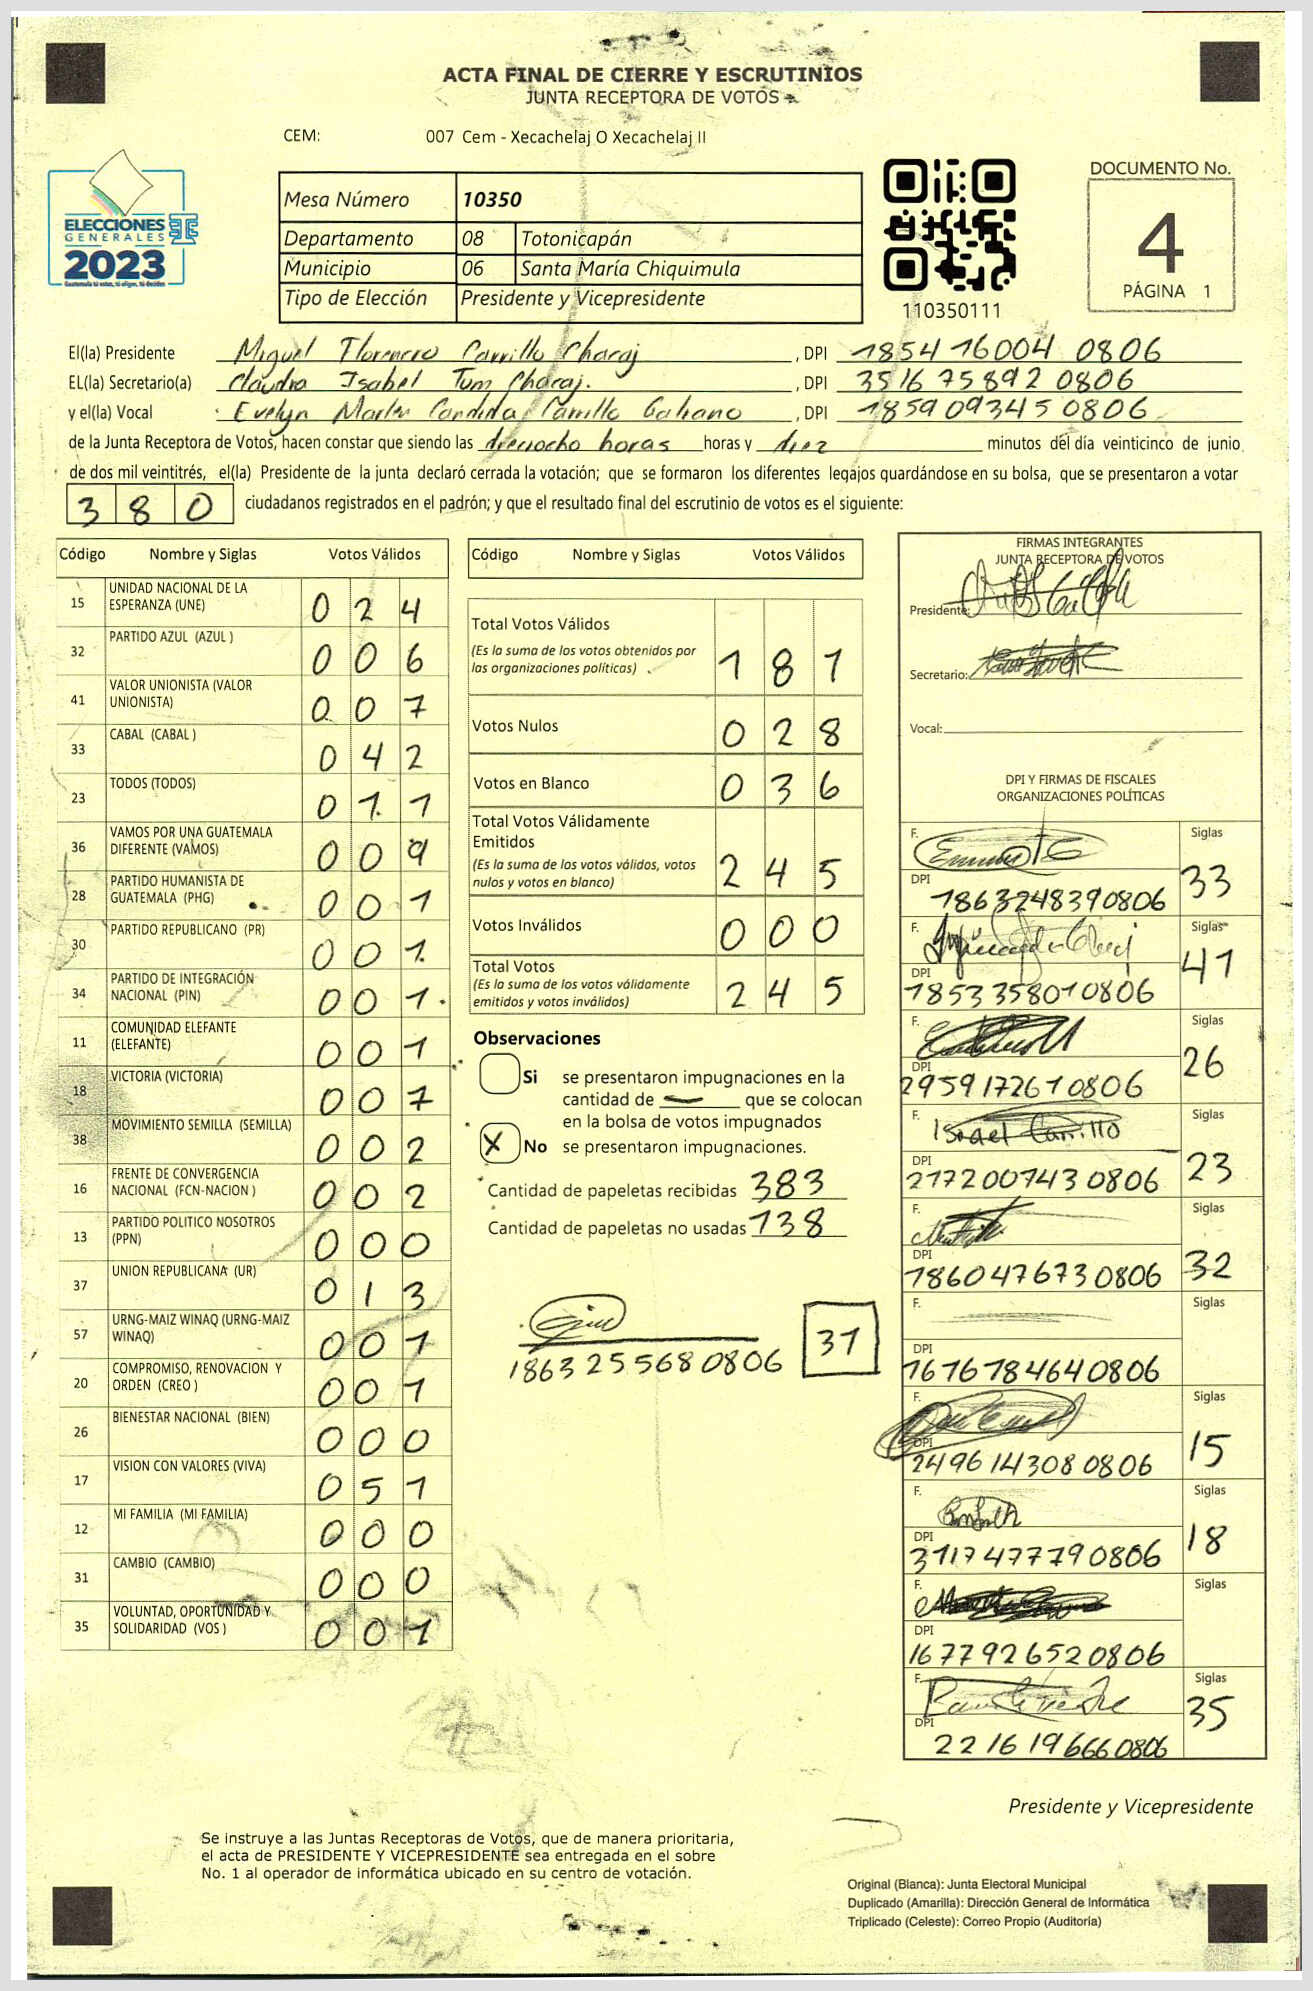 ACTA FINAL DE CIERRE Y ESCRUTINIOS
JUNTA RECEPTORA DE VOTOS
CEM: 007 Cem - Xecachelaj O Xecachelaj II
ELECCIONES
GENERALES
2023
Mesa Número 10350
Departamento 08 Totonicapán
Municipio 06 Santa María Chiquimula
Tipo de Elección Presidente y Vicepresidente
110350111
DOCUMENTO No.
4
PÁGINA 1
El(la) Presidente Miguel Florencio Carrillo Charaj, DPI 1854 16004 0806
EL(la) Secretario(a) Claudia Isabel Tum Charaj., DPI 3516 75892 0806
y el(la) Vocal Evelyn Candida Carrillo Galeano, DPI 1859 09345 0806
de la Junta Receptora de Votos, hacen constar que siendo las dieciocho horas horas y diez minutos del día veinticinco de junio
de dos mil veintitrés, el(la) Presidente de la junta declaró cerrada la votación; que se formaron los diferentes legajos quardándose en su bolsa, que se presentaron a votar
380 ciudadanos registrados en el padrón; y que el resultado final del escrutinio de votos es el siguiente:
Código Nombre y Siglas Votos Válidos
15 UNIDAD NACIONAL DE LA ESPERANZA (UNE) 024
32 PARTIDO AZUL (AZUL ) 006
41 VALOR UNIONISTA (VALOR UNIONISTA) 007
33 CABAL (CABAL ) 042
23 TODOS (TODOS) 011
36 VAMOS POR UNA GUATEMALA DIFERENTE (VAMOS) 009
28 PARTIDO HUMANISTA DE GUATEMALA (PHG) 001
30 PARTIDO REPUBLICANO (PR) 001
34 PARTIDO DE INTEGRACIÓN NACIONAL (PIN) 001
11 COMUNIDAD ELEFANTE (ELEFANTE) 001
18 VICTORIA (VICTORIA) 007
38 MOVIMIENTO SEMILLA (SEMILLA) 002
16 FRENTE DE CONVERGENCIA NACIONAL (FCN-NACION ) 002
13 PARTIDO POLITICO NOSOTROS (PPN) 000
37 UNION REPUBLICANA (UR) 013
57 URNG-MAIZ WINAQ (URNG-MAIZ WINAQ) 001
20 COMPROMISO, RENOVACION Y ORDEN (CREO ) 001
26 BIENESTAR NACIONAL (BIEN) 000
17 VISION CON VALORES (VIVA) 051
12 MI FAMILIA (MI FAMILIA) 000
31 CAMBIO (CAMBIO) 000
35 VOLUNTAD, OPORTUNIDAD Y SOLIDARIDAD (VOS ) 001
Código Nombre y Siglas Votos Válidos
Total Votos Válidos
(Es la suma de los votos obtenidos por las organizaciones políticas) 181
Votos Nulos 028
Votos en Blanco 036
Total Votos Válidamente Emitidos
(Es la suma de los votos válidos, votos nulos y votos en blanco) 245
Votos Inválidos 000
Total Votos
(Es la suma de los votos válidamente emitidos y votos inválidos) 245
Observaciones
Si se presentaron impugnaciones en la
cantidad de — que se colocan
en la bolsa de votos impugnados
X No se presentaron impugnaciones.
Cantidad de papeletas recibidas 383
Cantidad de papeletas no usadas 138
1863 25568 0806 31
FIRMAS INTEGRANTES
JUNTA RECEPTORA DE VOTOS
Presidente:
Secretario:
Vocal:
DPI Y FIRMAS DE FISCALES
ORGANIZACIONES POLÍTICAS
F. Siglas
DPI 1863248390806 33
F. Siglas
DPI 1853358010806 41
F. Siglas
DPI 2959172610806 26
F. Israel Carrillo Siglas
DPI 2172200743 0806 23
F. Siglas
DPI 1860476730806 32
F. Siglas
DPI 1676784640806
F. Siglas
DPI 2496143080806 15
F. Siglas
DPI 3117477790806 18
F. Siglas
DPI 1677926520806
F. Siglas
DPI 2216196660806 35
Presidente y Vicepresidente
Se instruye a las Juntas Receptoras de Votos, que de manera prioritaria,
el acta de PRESIDENTE Y VICEPRESIDENTE sea entregada en el sobre
No. 1 al operador de informática ubicado en su centro de votación.
Original (Blanca): Junta Electoral Municipal
Duplicado (Amarilla): Dirección General de Informática
Triplicado (Celeste): Correo Propio (Auditoría)